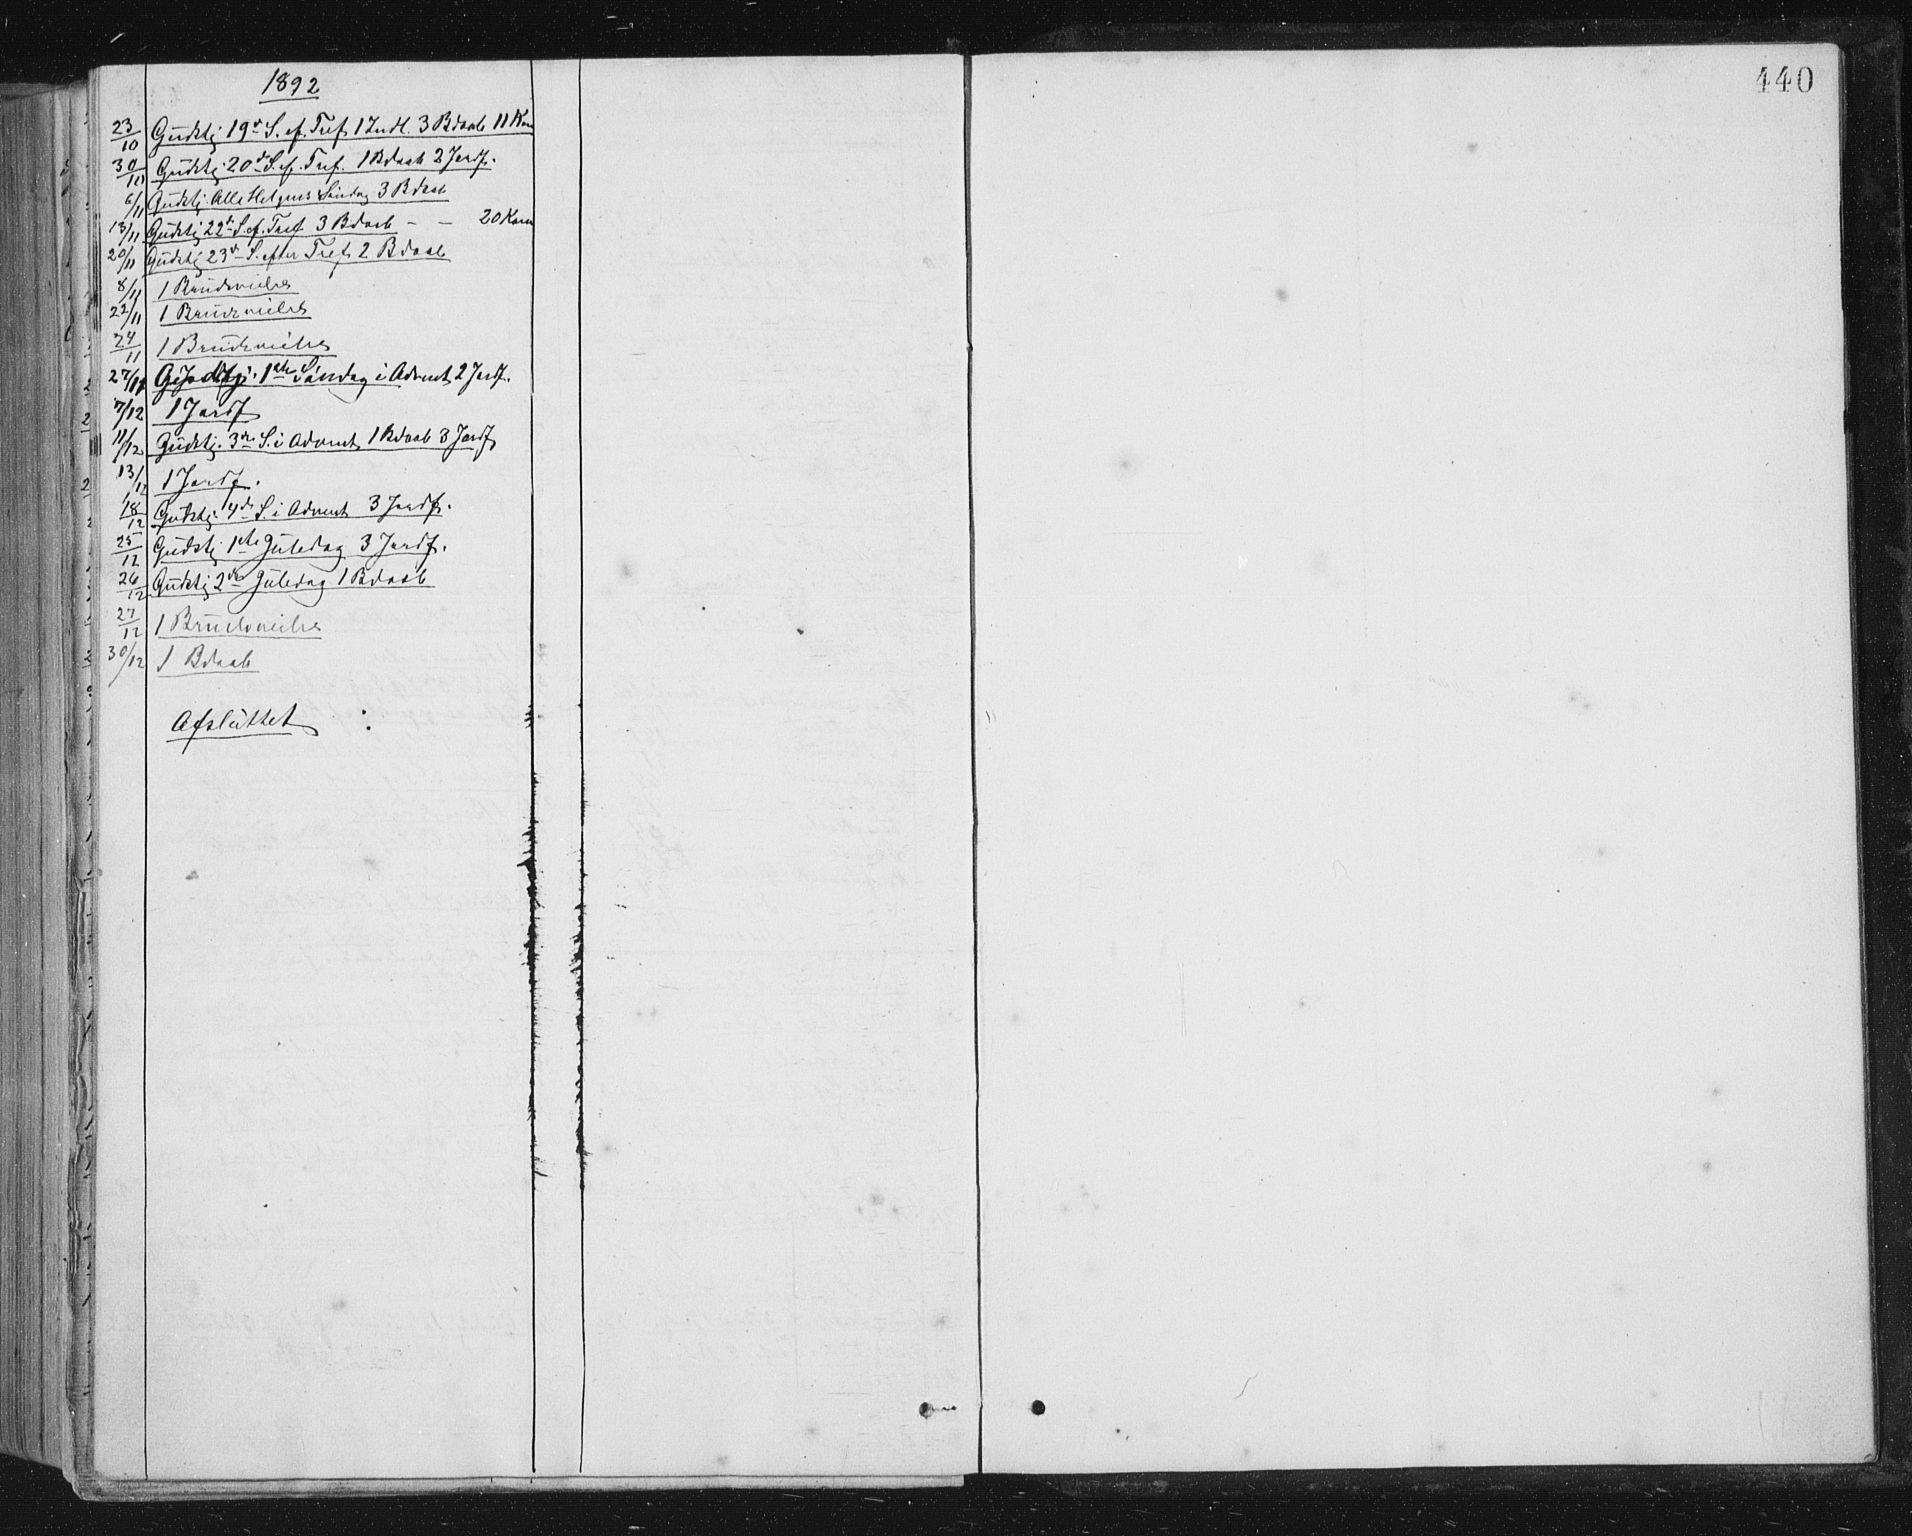 440
1892
23/10 Gudstj 19de S. ef. Tref 1 Indl. 3 Bdaab 11 Kom
30/10 Gudstj. 20de S. ef. Tref. 1 Bdaab 2 Jordf.
6/11 Gudstj. Alle Helgens Söndag 3 Bdaab
13/11 Gudstj 22de S. ef. Tref. 3 Bdaab – – 20 Kom
20/11 Gudstj 23de S. efter Tref 2 Bdaab
8/11 1 Brudevielse
22/11 1 Brudevielse
24/11 1 Brudevielse
27/11 1ste Söndag i Advent 2 Jordf.
7/12 1 Jordf
11/12 Gudstj. 3die S. i Advent 1 Bdaab 3 Jordf
13/12 1 Jordf.
18/12 Gudstj. 4de S. i Advent 3 Jordf.
25/12 Gudstj 1ste Juledag 3 Jordf.
26/12 Gudstj 2den Juledag 1 Bdaab
27/12 1 Brudevielse
30/12 1 Bdaab
Afsluttet :